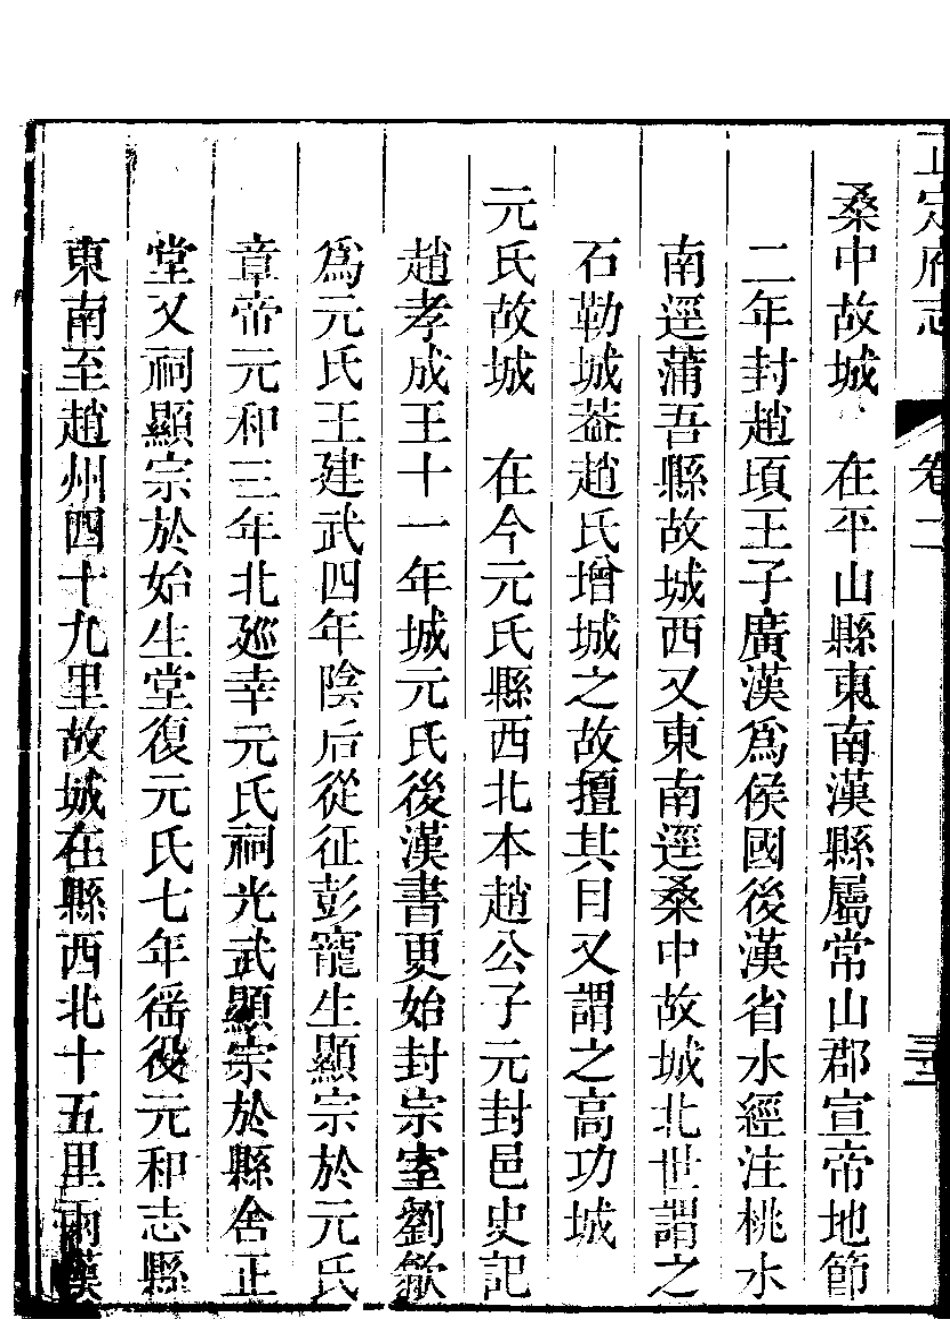 正定府志　卷二　三十二
桑中故城　在平山縣東南漢縣屬常山郡宣帝地節
二年封趙頃王子廣漢爲侯國後漢省水經注桃水
南逕蒲吾縣故城西又東南逕桑中故城北世謂之
石勒城葢趙氏增城之故擅其目又謂之高功城
元氏故城　在今元氏縣西北本趙公子元封邑史記
趙孝成王十一年城元氏後漢書更始封宗室劉歙
爲元氏王建武四年陰后從征彭寵生顯宗於元氏
章帝元和三年北廵幸元氏祠光武顯宗於縣舍正
堂又祠顯宗於始生堂復元氏七年徭役元和志縣
東南至趙州四十九里故城在縣西北十五里兩漢